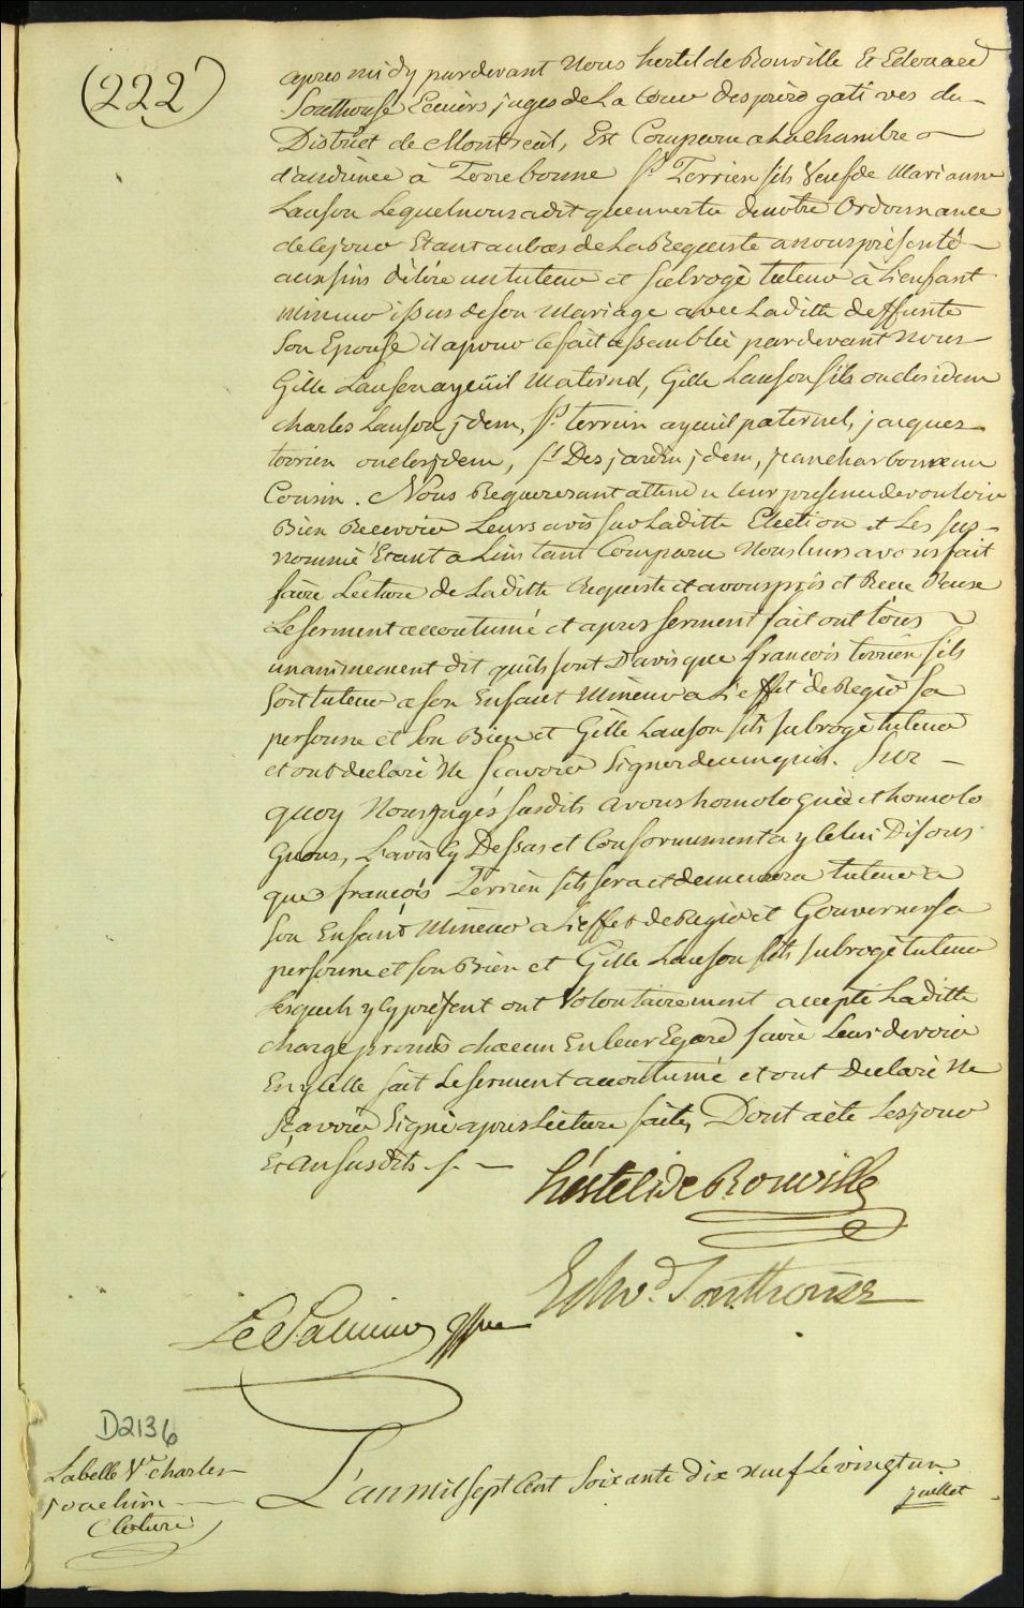 (222)
apres midy pardevant Nous hertel de Rouville Et Edouard
Southouse Ecuiers juges de La Cour des prérogatives du
District de Montreal, Est Comparu a La chambre
d'audiance à Terrebonne fs. Terrien fils Veuf de Marianne
Lauson Lequel nous a dit qu'en vertu de notre Ordonnance
de cejour Etant au bas de La Requeste a nous présenté
aux fins d'élire un tuteur et subrogé tuteur à L'enfant
mineur issus de son Mariage avec Laditte deffunte
Son Epouse il a pour ce fait assemblée pardevant nous
Gille Lauson ayeüil Maternel, Gille Lauson fils oncle idem
charles Lauson jdem, fs. terrien ayeuil paternel, jacques
terrien oncles jdem, fs Desjardin jdem, jean charbonneau
Cousin. Nous Requerant attendu leur presence de vouloir
Bien Recevoir Leurs avis sur Laditte Election et Les sus
nommé Etant a Linstant Comparu Nous leurs avons fait
faire Lecture de Laditte Requeste et avons pris et Recu d'eux
Le serment accoutumé et apres serment fait ont tous
unanimement dit qu'ils sont D'avis que françois terrien fils
soit tuteur a son Enfant Mineur a L'effet de Regir sa
personne et son Bien et Gille Lauson fils subrogé tuteur
et ont declaré Ne scavoir Signer de ce enquis. Sur
quoy Nous juges susdits avons homologuée et homolo
guons, L'avis cy Dessus et Conformement a ycelui Disons
que françois Terrien fils sera et demeurera tuteur a
son Enfant Mineur a L'effet de Regir et Gouverner sa
personne et son Bien et Gille Lauson fils subrogé tuteur
lesquels ycy présent ont Volontairement accepté Laditte
charge promis chacun En leur Egard faire Leur devoir
En ycelle fait Le serment accoutumé et ont Declaré Ne
Scavoir Signé apres Lecture faite, Dont acte Les jour
Et An susdits ./. —
hertel de Rouville
Edwd. Southouse
D2136
Labelle Ve charles
joachim
Cloture
L'an mil sept Cent Soixante dix Neuf Le vingt un
juillet